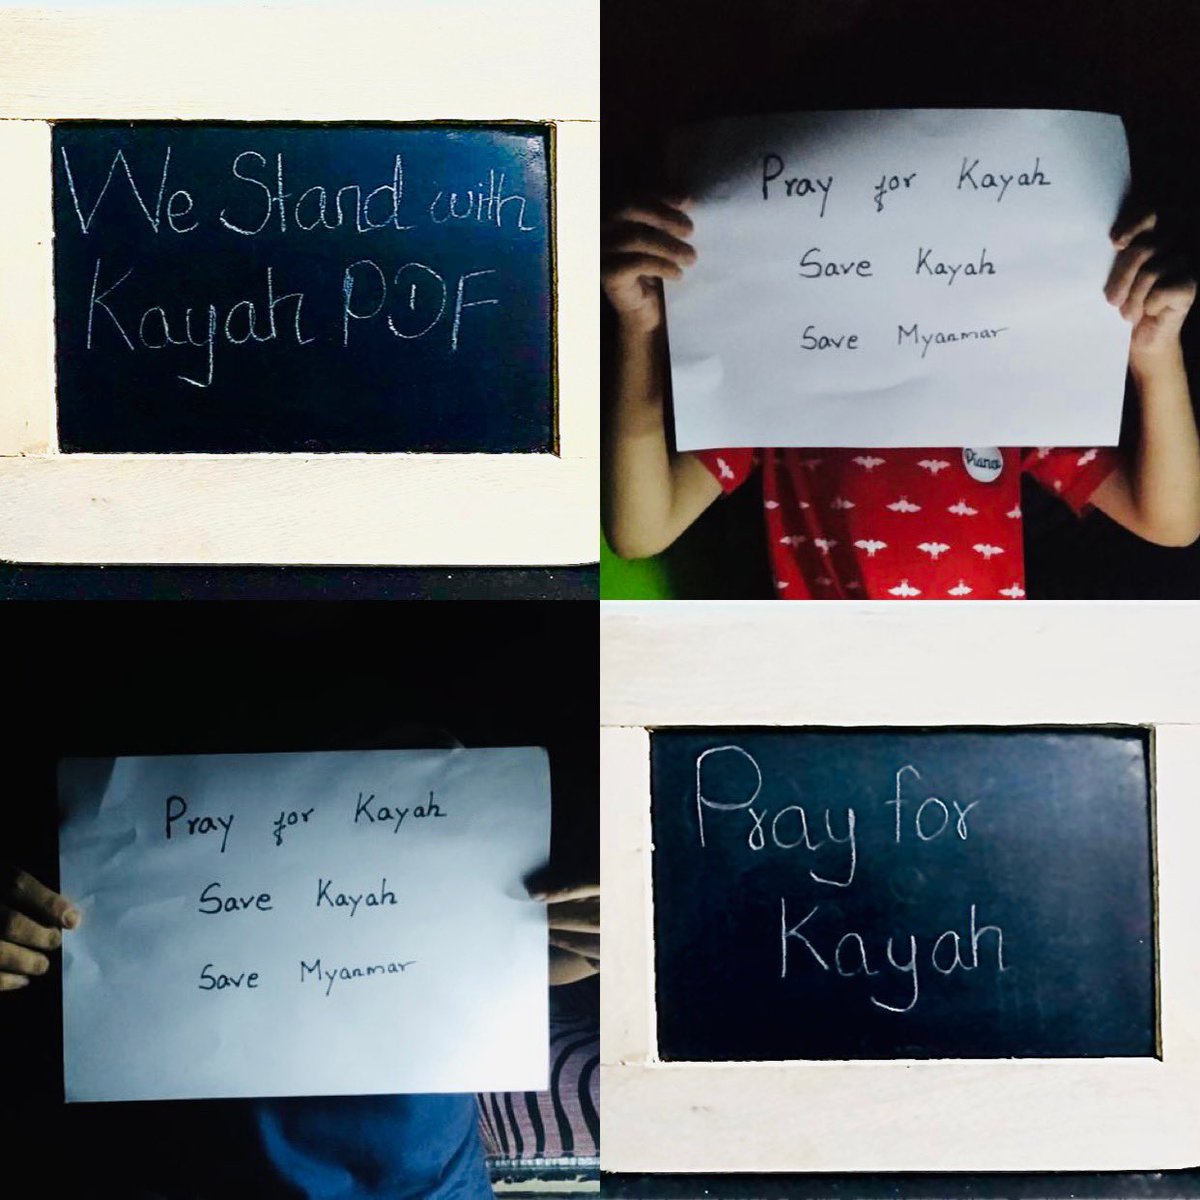 We Stand with
Kayah PDF
Pray for Kayah
Save Kayah
Save Myanmar
Piano
Pray for Kayah
Save Kayah
Save Myanmar
Pray for
Kayah